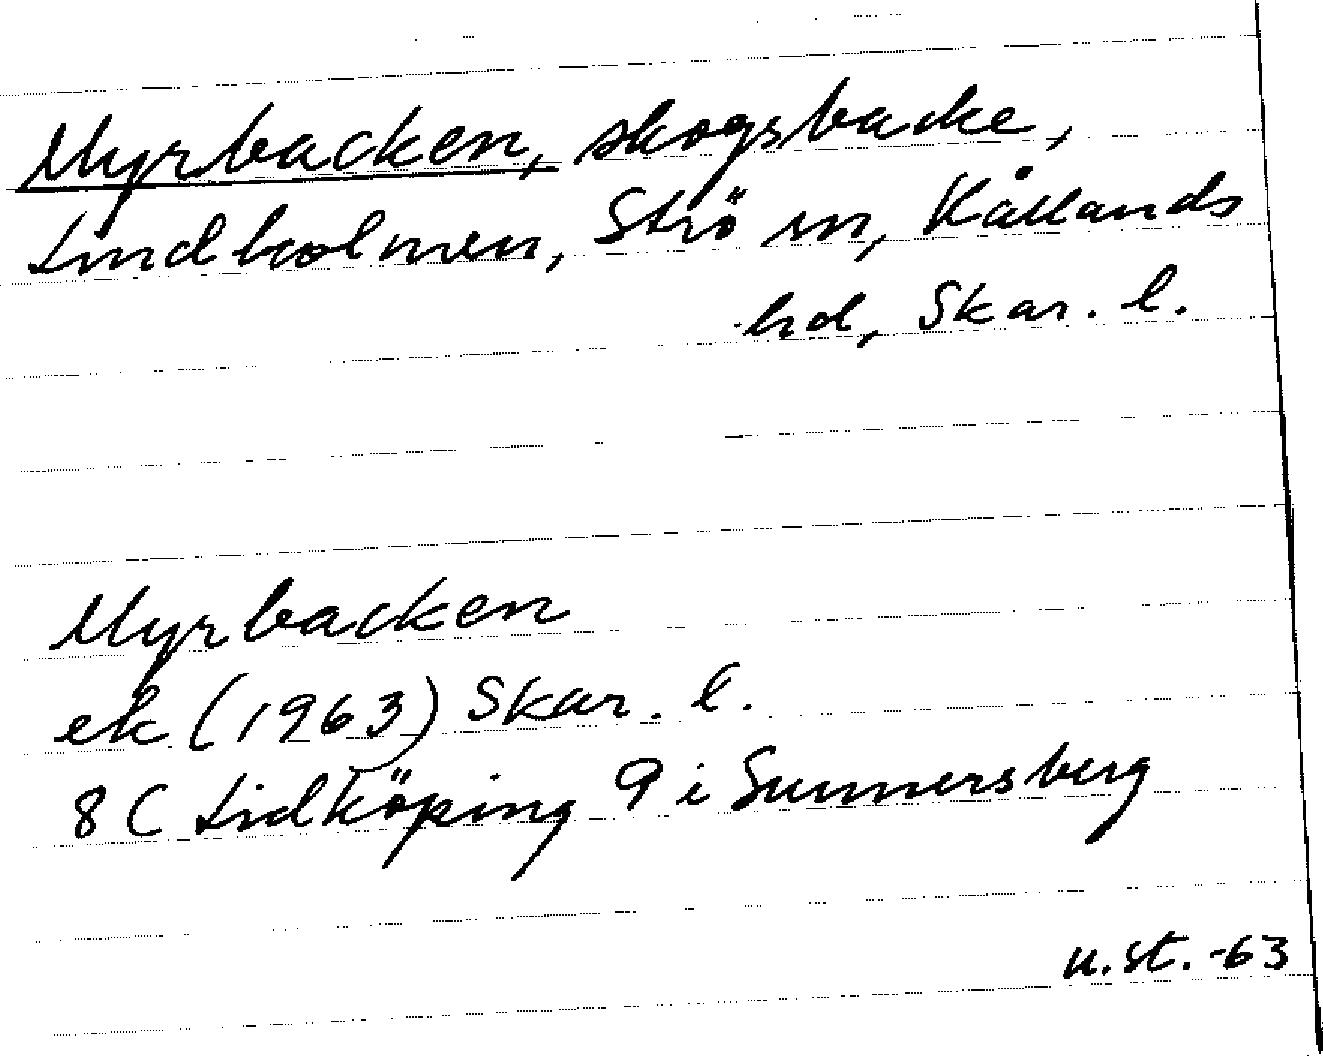 Myrbacken, skogsbacke,
Lindholmen, Strö sn, Kållands
hd, Skar. l.
Myrbacken
ek (1963) Skar. l.
8 C Lidköping 9 i Sunnersberg
u.st. -63